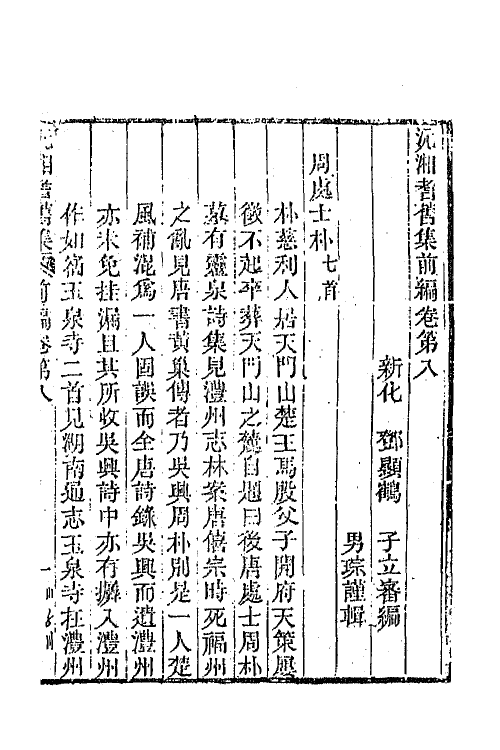 沅湘耆舊集前編卷第八
新化　鄧顯鶴　子立審編
男琮謹輯
周處士朴七首
朴慈利人居天門山楚王馬殷父子開府天策屢
徵不起卒葬天門山之麓自題曰後唐處士周朴
墓有靈泉詩集見澧州志林案唐僖宗時死福州
之亂見唐書黃巢傳者乃吳興周朴別是一人楚
風補混爲一人固誤而全唐詩錄吳興而遺澧州
亦未免挂漏且其所收吳興詩中亦有攙入澧州
作如宿玉泉寺二首見湖南通志玉泉寺在澧州
沅湘耆舊集 前編卷第八
一